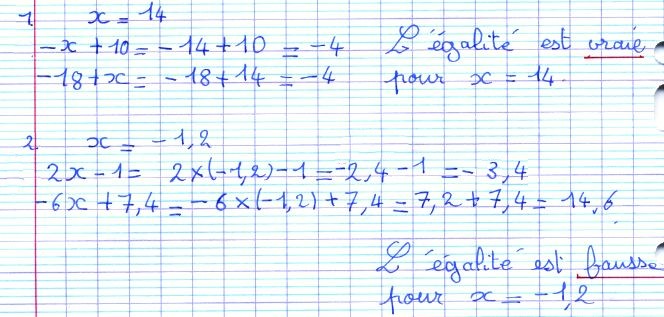 1. x = 14
-x + 10 = -14 + 10 = -4 L'égalité est vraie
-18 + x = -18 + 14 = -4 pour x = 14.
2. x = -1,2
2x - 1 = 2 × (-1,2) - 1 = -2,4 - 1 = -3,4
-6x + 7,4 = -6 × (-1,2) + 7,4 = 7,2 + 7,4 = 14,6
L'égalité est fausse
pour x = -1,2